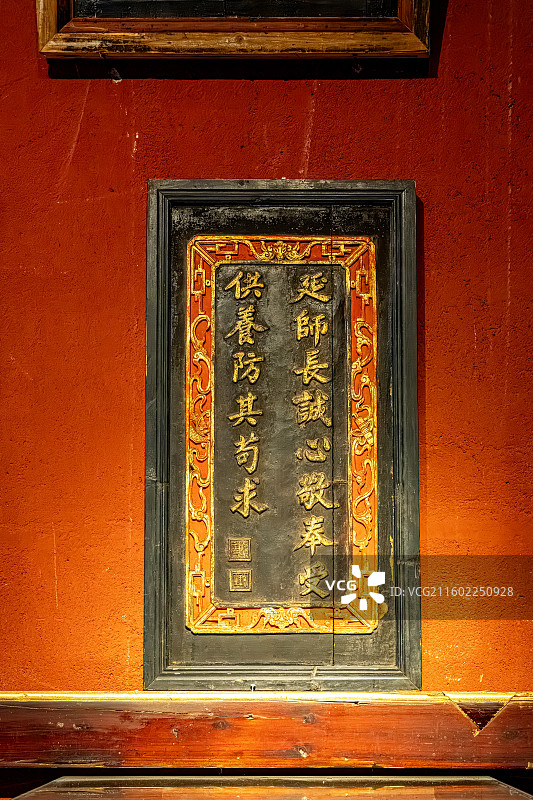 延師長誠心敬奉受
供養防其苟求
VCG
ID:VCG211602250928